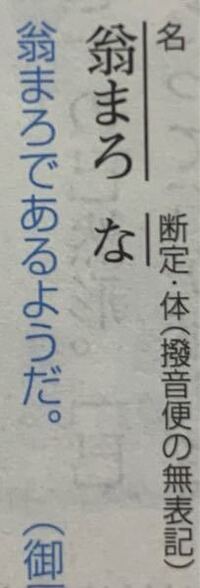 名 断定・体(撥音便の無表記)
翁まろ な
翁まろであるようだ。 (御